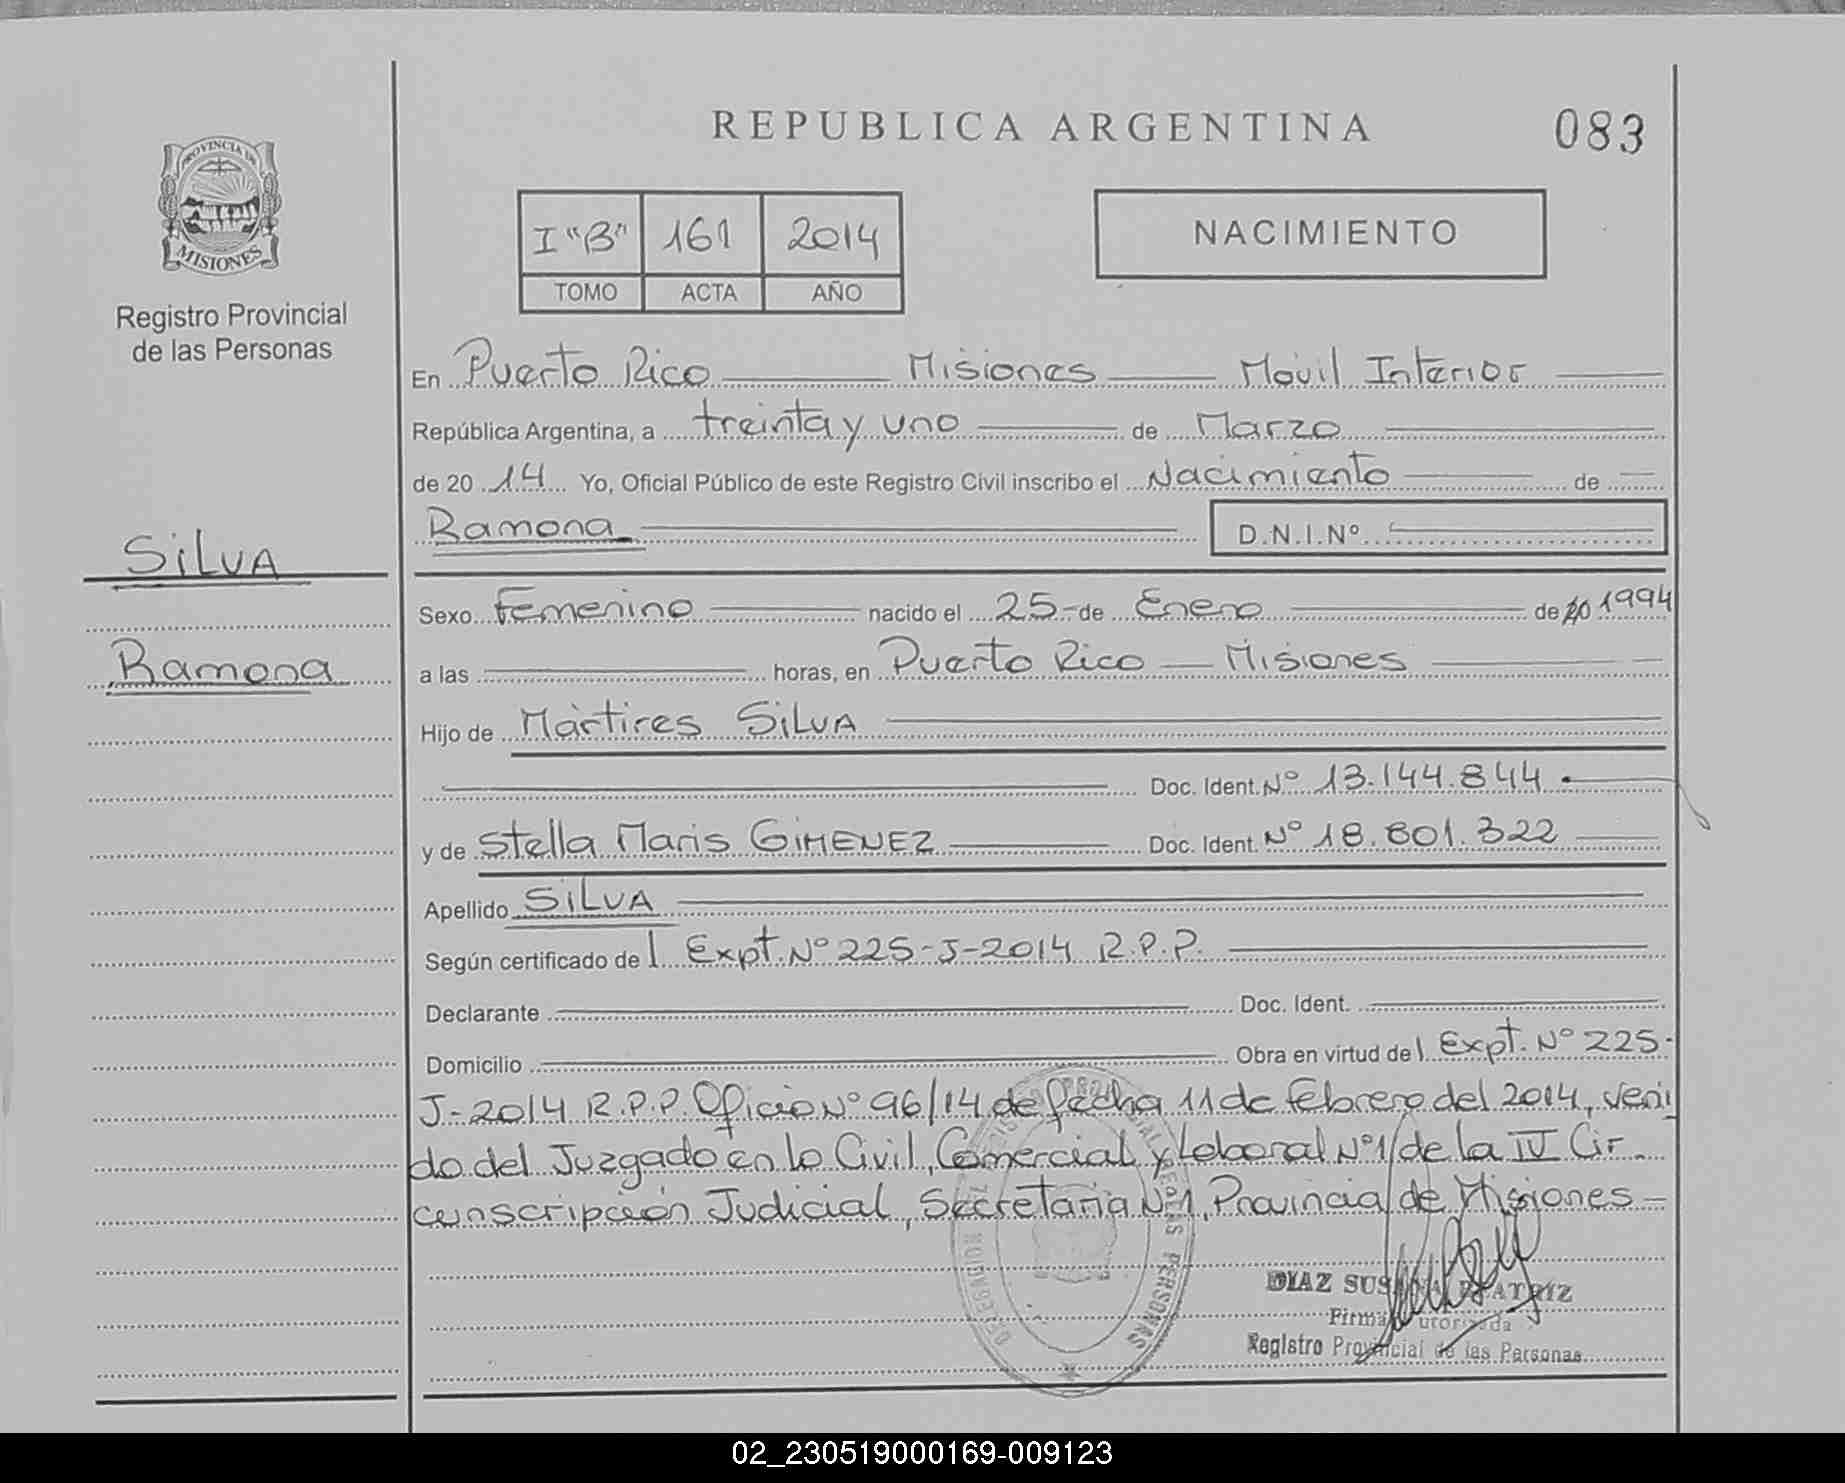 REPUBLICA ARGENTINA
083
PROVINCIA DE
MISIONES
Registro Provincial
de las Personas
I "B" 161 2014
TOMO ACTA AÑO
NACIMIENTO
En Puerto Rico Misiones Móvil Interior
República Argentina, a treinta y uno de Marzo
de 2014 Yo, Oficial Público de este Registro Civil inscribo el Nacimiento de
Ramona D.N.I.Nº
SILVA
Ramona
Sexo Femenino nacido el 25 de Enero de 20 1994
a las horas, en Puerto Rico Misiones
Hijo de Mártires SILVA
Doc. Ident. Nº 13.144.844
y de Stella Maris GIMENEZ Doc. Ident. Nº 18.801.322
Apellido SILVA
Según certificado del Expt. Nº 225-J-2014 R.P.P.
Declarante Doc. Ident.
Domicilio Obra en virtud del Expt. Nº 225-
J-2014 R.P.P. Oficio Nº 96/14 de fecha 11 de Febrero del 2014, veni
do del Juzgado en lo Civil, Comercial y Laboral Nº1 de la IV Cir
cunscripción Judicial, Secretaria Nº1, Provincia de Misiones
DELEGACION PERSONAS
DIAZ SUSANA BEATRIZ
Firma Autorizada
Registro Provincial de las Personas
02_230519000169-009123